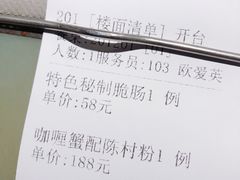 201 [楼面清单] 开台
人数:1服务员:103 欧爱英
特色秘制脆肠1 例
单价:58元
咖喱蟹配陈村粉1 例
单价:188元